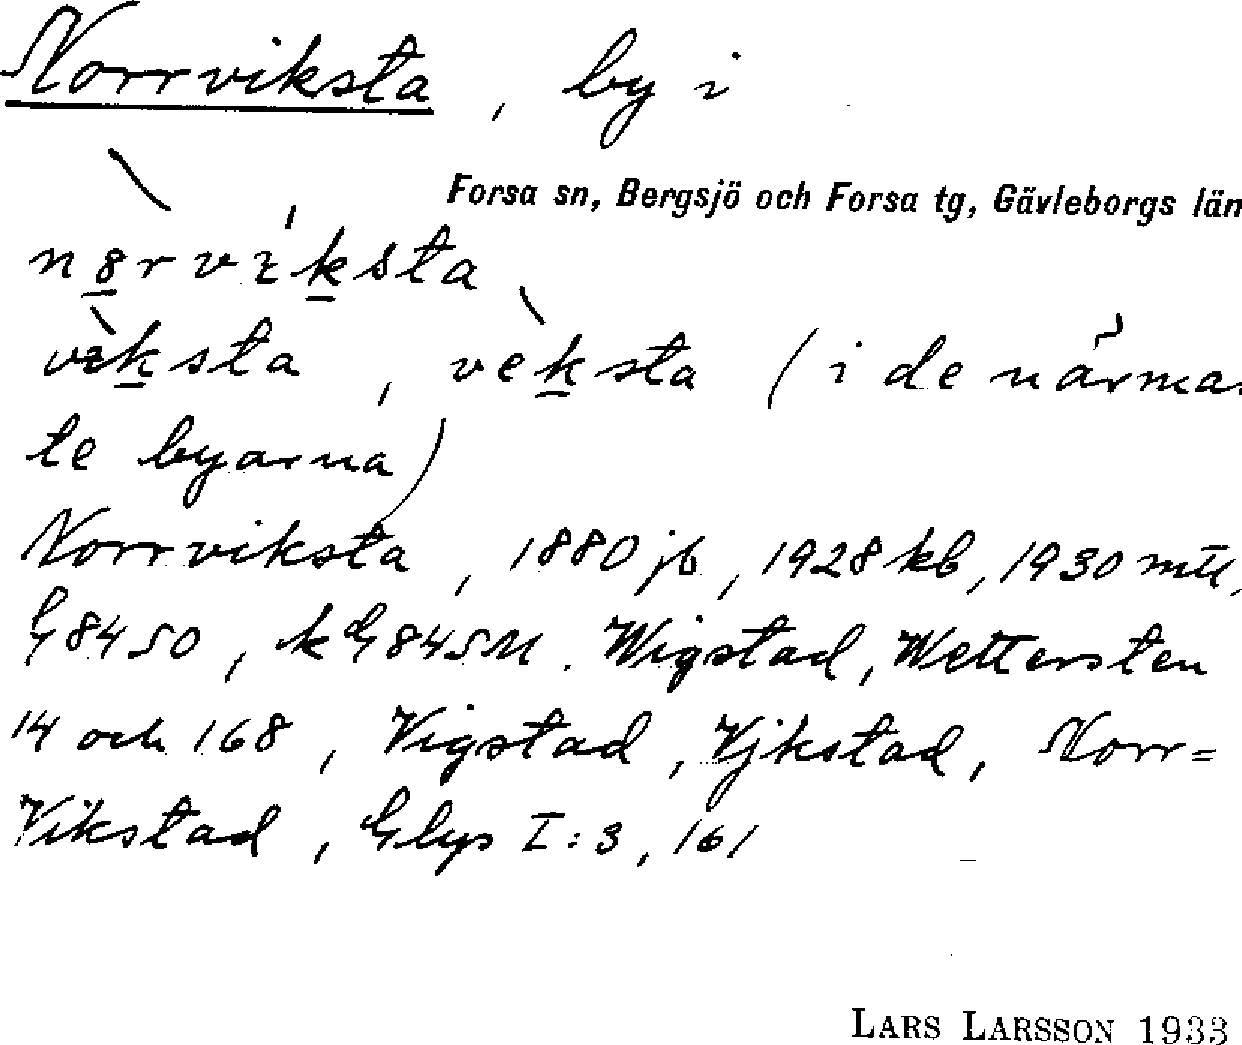 Norrviksta, by i
Forsa sn, Bergsjö och Forsa tg, Gävleborgs län
n8rviksta
viksta, veksta (i de närmas
te byarna)
Norrviksta, 1880 jb, 1928 kb, 1930 mtl,
G 84 SO, k G 84 SM. Wigstad, Wettersten
14 och 168, Vigstad, Vjkstad, Norr=
Vikstad, Glys I:3, 161
LARS LARSSON 1933